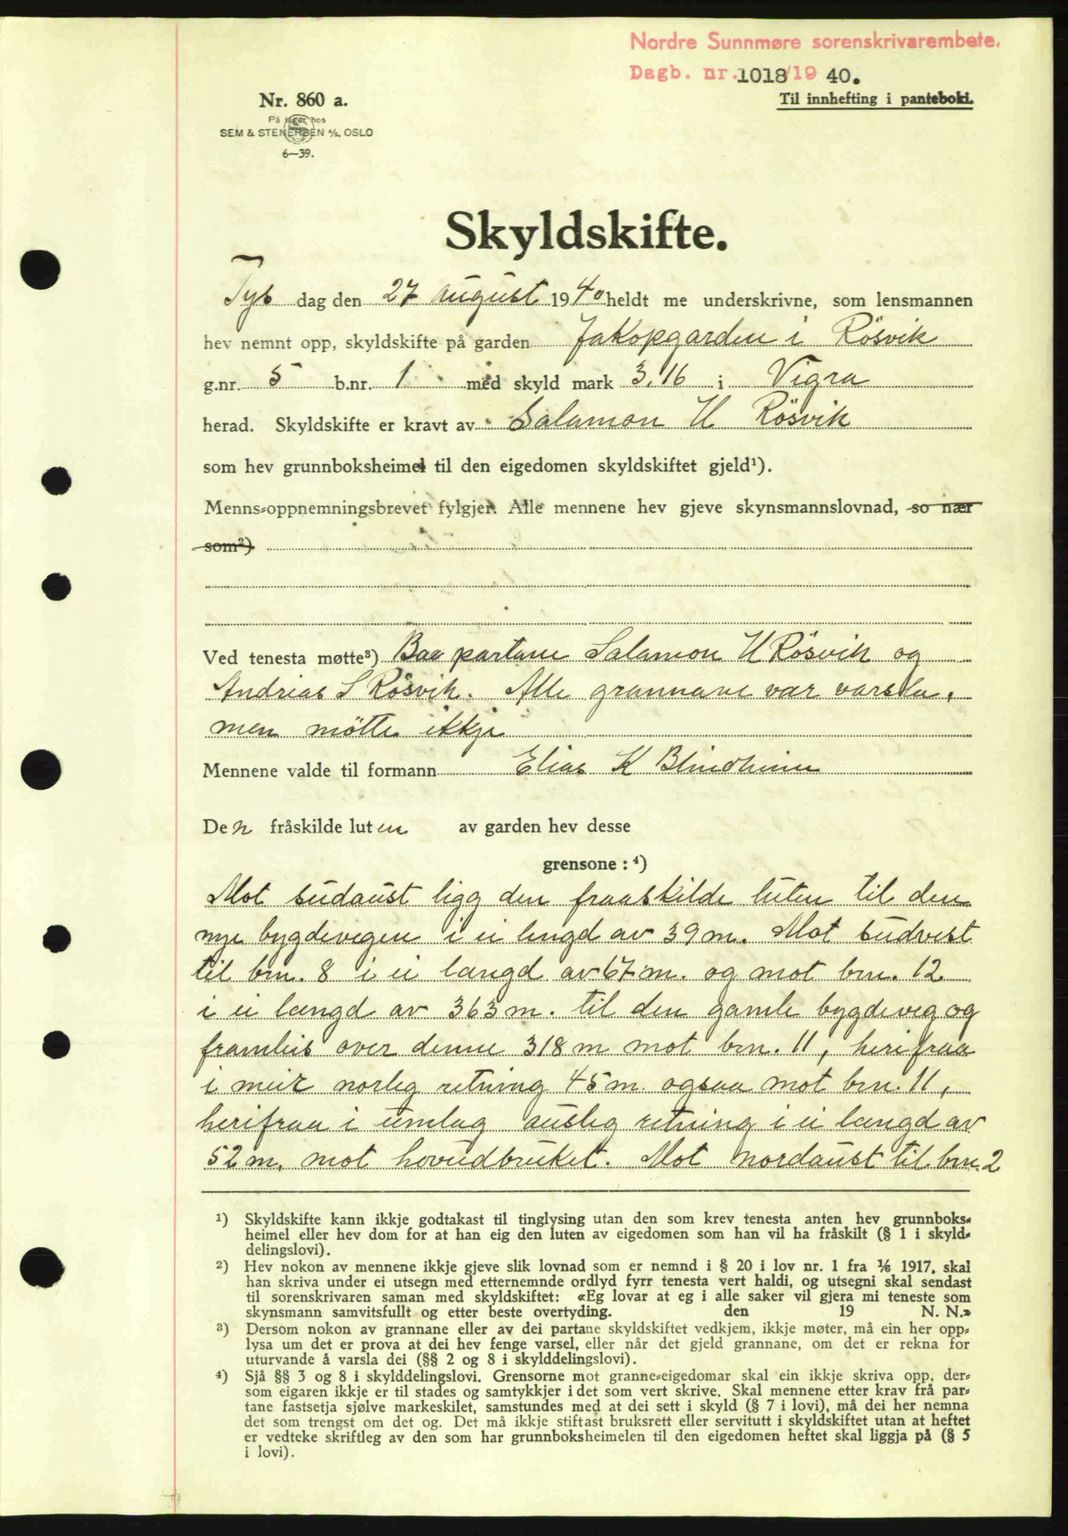 Nordre Sunnmøre sorenskrivarembete.
Dagb. nr. 1018/19 40.
Til innhefting i panteboki.
Nr. 860 a.
På lager hos
SEM & STENERSEN A/S, OSLO
6—39.
Skyldskifte.
Tys dag den 27 august 1940 heldt me underskrivne, som lensmannen
hev nemnt opp, skyldskifte på garden Jakopgarden i Røsvik
g.nr. 5 b.nr. 1 med skyld mark 3,16 i Vigra
herad. Skyldskifte er kravt av Salamon H Røsvik
som hev grunnboksheimel til den eigedomen skyldskiftet gjeld¹).
Menns-oppnemningsbrevet fylgjer. Alle mennene hev gjeve skynsmannslovnad, so nær
som²)
Ved tenesta møtte³) Bae partane Salamon H Røsvik og
Andrias S Røsvik. Alle grannane var varsla,
men møtte ikkje
Mennene valde til formann Elias K Blindheim
Den fråskilde luten av garden hev desse
grensone : ⁴)
Mot sudaust ligg den fraaskilde luten til den
nye bygdevegen i ei lengd av 39 m. Mot sudvest
til brn. 8 i ei længd av 67 m. og mot brn. 12
i ei længd av 363 m. til den gamle bygdeveg og
framleis over denne 318 m mot brn. 11, herifraa
i meir norleg retning 45 m. ogsaa mot brn. 11,
herifraa i umlag austeg retning i ei længd av
52 m. mot hovudbruket. Mot nordaust til brn. 2
¹) Skyldskifte kann ikkje godtakast til tinglysing utan den som krev tenesta anten hev grunnboks-
heimel eller hev dom for at han eig den luten av eigedomen som han vil ha fråskilt (§ 1 i skyld-
delingslovi).
²) Hev nokon av mennene ikkje gjeve slik lovnad som er nemnd i § 20 i lov nr. 1 fra 1/6 1917, skal
han skriva under ei utsegn med etternemnde ordlyd fyrr tenesta vert haldi, og utsegni skal sendast
til sorenskrivaren saman med skyldskiftet: «Eg lovar at eg i alle saker vil gjera mi teneste som
skynsmann samvitsfullt og etter beste overtyding. den 19 N. N.»
³) Dersom nokon av grannane eller av dei partane skyldskiftet vedkjem, ikkje møter, må ein her opp-
lysa um det er prova at dei hev fenge varsel, eller når det gjeld grannane, om det er rekna for
uturvande å varsla dei (§§ 2 og 8 i skylddelingslovi).
⁴) Sjå §§ 3 og 8 i skylddelingslovi. Grensorne mot granne-eigedomar skal ein ikkje skriva opp, der-
som eigaren ikkje er til stades og samtykkjer i det som vert skrive. Skal mennene etter krav frå par-
tane fastsetja sjølve markeskilet, samstundes med at dei sett i skyld (§ 7 i lovi), må dei her nemna
det som trengst om det og. Det må ikkje stiftast bruksrett eller servitutt i skyldskiftet utan at heftet
er vedteke skriftleg av den som har grunnboksheimelen til den eigedomen heftet skal liggja på (§ 5
i lovi).